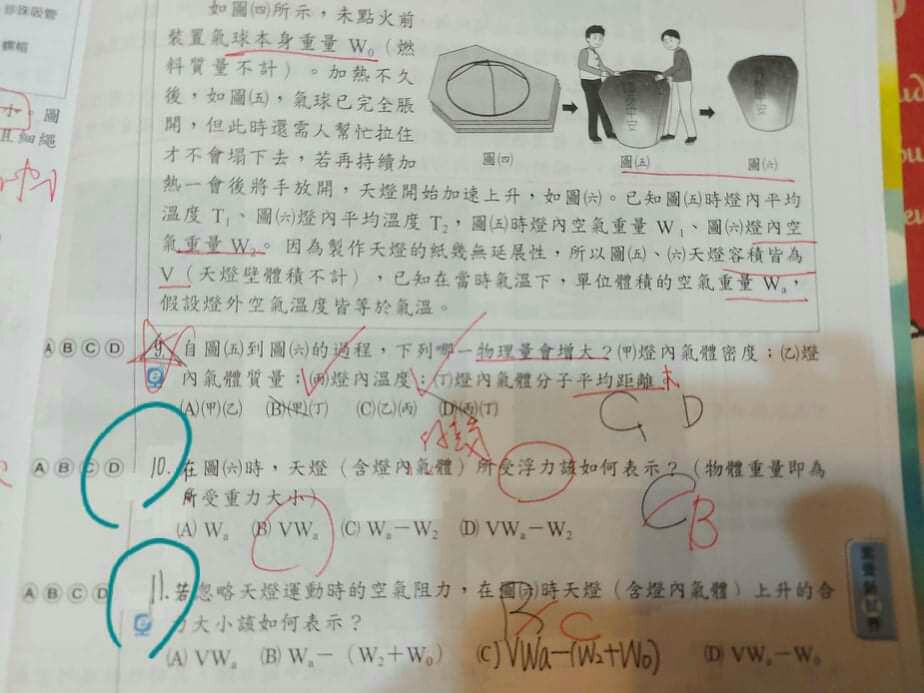 珍珠吸管
螺帽
如圖㈣所示，未點火前
裝置氣球本身重量 W₀（燃
料質量不計）。加熱不久
後，如圖㈤，氣球已完全脹
開，但此時還需人幫忙拉住
才不會塌下去，若再持續加
圖㈣
圖㈤
圖㈥
熱一會後將手放開，天燈開始加速上升，如圖㈥。已知圖㈤時燈內平均
溫度 T₁、圖㈥燈內平均溫度 T₂，圖㈤時燈內空氣重量 W₁、圖㈥燈內空
氣重量 W₂。因為製作天燈的紙幾無延展性，所以圖㈤、㈥天燈容積皆為
V（天燈壁體積不計），已知在當時氣溫下，單位體積的空氣重量 Wₐ，
假設燈外空氣溫度皆等於氣溫。
水 圖
細繩
Ⓐ Ⓑ Ⓒ Ⓓ 9. 自圖㈤到圖㈥的過程，下列哪一物理量會增大？(甲)燈內氣體密度；(乙)燈
內氣體質量；(丙)燈內溫度；(丁)燈內氣體分子平均距離。
(A)(甲)(乙) (B)(甲)(丁) (C)(乙)(丙) (D)(丙)(丁)
C D
Ⓐ Ⓑ Ⓒ Ⓓ 10. 在圖㈥時，天燈（含燈內氣體）所受浮力該如何表示？（物體重量即為
所受重力大小）
(A) Wₐ (B) VWₐ (C) Wₐ－W₂ (D) VWₐ－W₂
C B
Ⓐ Ⓑ Ⓒ Ⓓ 11. 若忽略天燈運動時的空氣阻力，在圖㈥時天燈（含燈內氣體）上升的合
力大小該如何表示？
B C
(A) VWₐ (B) Wₐ－（W₂＋W₀） (C) VWa－(W₂+W₀) (D) VWₐ－W₀